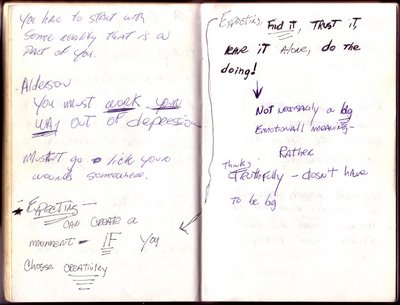 You have to start with
some reality that is a
Part of you.
Alderson
You must work your
way out of depression
Must go lick your
wounds somewhere.
- Expecting -
can create a
moment - IF you
choose creativley
Expecting, Find it, Trust it,
leave it alone, do the
doing!
Not necessarily a big
Emotionall meaning -
Rather
Think,
Truthfully - doesn't have
to be big